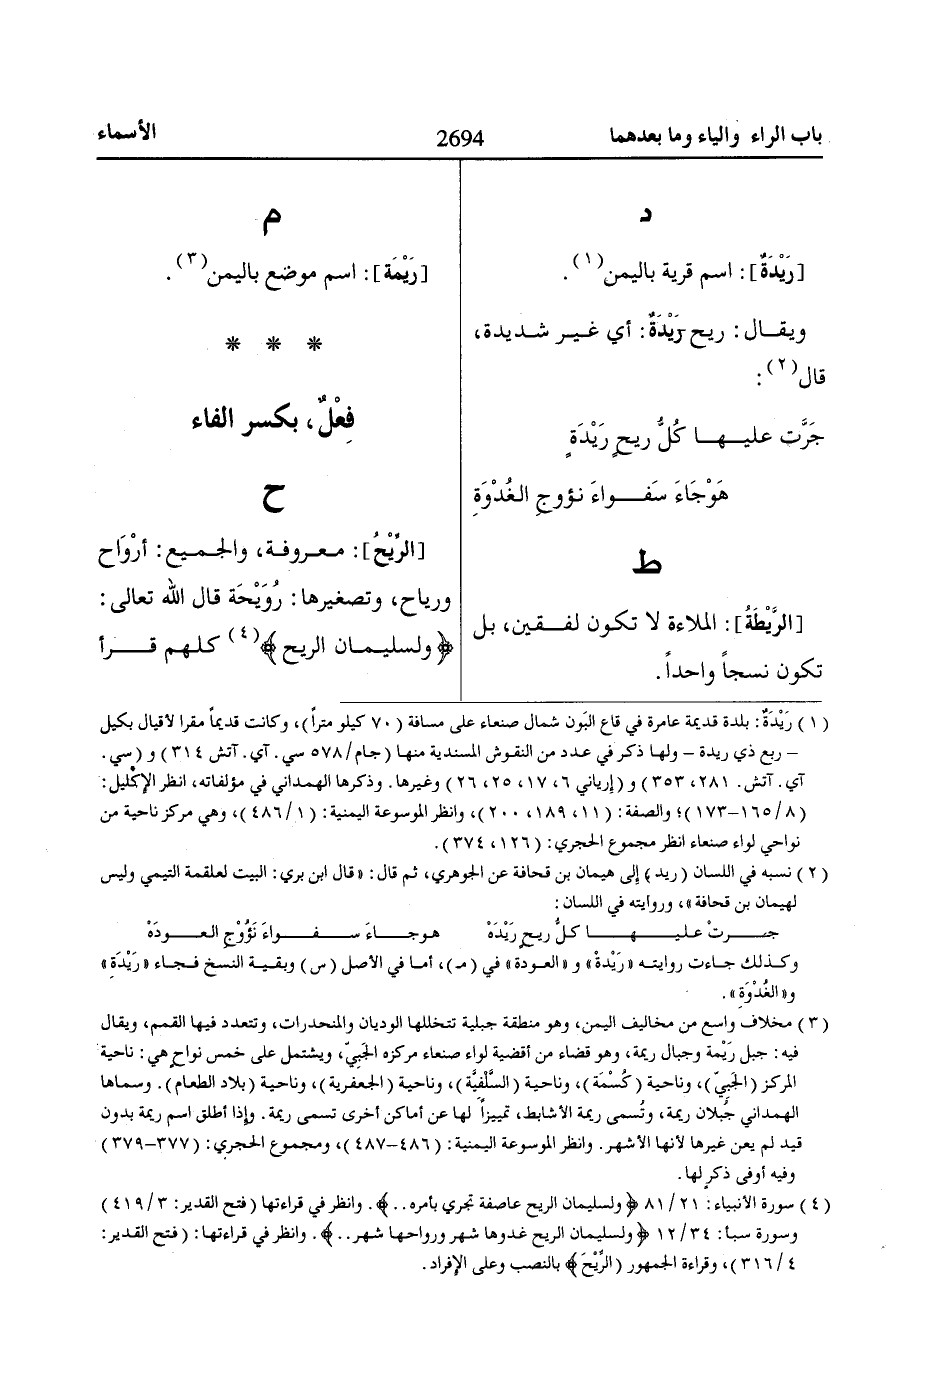 باب الراء والياء وما بعدهما
2694
الأسماء
د
[رَيْدَةٌ]: اسم قرية باليمن(١).
ويقــال: ريح رَيْدَةٌ: أي غـيـر شـديـدة،
قال(٢):
جَرَّت عليـهـا كُلُّ ريحٍ رَيْدَةٍ
هَوْجَاءَ سَفْـواءَ نؤوجِ الغُدْوَةِ
ط
[الرَّيْطَةُ]: الملاءة لا تكون لفقين، بل
تكون نسجاً واحداً.
م
[رَيْمَة]: اسم موضع باليمن(٣).
* * *
فِعْلٌ، بكسر الفاء
ح
[الرِّيْحُ]: معـروفـة، والجـمـيع: أرْوَاح
ورياح، وتصغيرها: رُوَيْحَة قال الله تعالى:
﴿ولسليمان الريح﴾(٤) كلـهم قـــرأ
(١) رَيْدَةٌ: بلدة قديمة عامرة في قاع البَون شمال صنعاء على مسافة (٧٠ كيلو متراً)، وكانت قديماً مقرا لأقيال بكيل
– ربع ذي ريدة – ولها ذكر في عدد من النقوش المسندية منها (جام/٥٧٨ سي. آي. آتش ٣١٤) و (سي.
آي. آتش. ٢٨١، ٣٥٣) و (إرياني ٦، ١٧، ٢٥، ٢٦) وغيرها. وذكرها الهمداني في مؤلفاته، انظر الإكليل:
(٨/ ١٦٥–١٧٣)؛ والصفة: (١١، ١٨٩، ٢٠٠)، وانظر الموسوعة اليمنية: (١/ ٤٨٦)، وهي مركز ناحية من
نواحي لواء صنعاء انظر مجموع الحجري: (١٢٦، ٣٧٤).
(٢) نسبه في اللسان (ريد) إلى هيمان بن قحافة عن الجوهري، ثم قال: «قال ابن بري: البيت لعلقمة التيمي وليس
لهيمان بن قحافة»، وروايته في اللسان:
جـــرتْ عليـــهـــا كلُّ ريحٍ رَيْدَهْ هوجـاءَ ســفـــواءَ نَؤُوْجِ العـــودَهْ
وكـذلك جـاءت روايتـه «رَيْدهْ» و «العودة» في (م‍)، أمـا في الأصل (س) وبقـية النسخ فـجـاء «رَيْدَةٍ»
و«الغُدْوَةِ».
(٣) مخلاف واسع من مخاليف اليمن، وهو منطقة جبلية تتخللها الوديان والمنحدرات، وتتعدد فيها القمم، ويقال
فيه: جبل رَيْمة وجبال ريمة، وهو قضاء من أقضية لواء صنعاء مركزه الجَبيّ، ويشتمل على خمس نواح هي: ناحية
المركز (الجَبيّ)، وناحية (كُسْمَة)، وناحية (السَّلْفِيَّة)، وناحية (الجعفرية)، وناحية (بلاد الطعام). وسماها
الهمداني جُبلان ريمة، وتُسمى ريمة الأشابط، تمييزاً لها عن أماكن أخرى تسمى ريمة. وإذا أطلق اسم ريمة بدون
قيد لم يعن غيرها لأنها الأشهر. وانظر الموسوعة اليمنية: (٤٨٦–٤٨٧)، ومجموع الحجري: (٣٧٧–٣٧٩)
وفيه أوفى ذكرٍ لها.
(٤) سورة الأنبياء: ٢١/ ٨١ ﴿ولسليمان الريح عاصفة تجري بأمره..﴾. وانظر في قراءتها (فتح القدير: ٣/ ٤١٩)
وسورة سبأ: ٣٤/ ١٢ ﴿ولسليمان الريح غدوها شهر ورواحها شهر..﴾. وانظر في قراءتها: (فتح القدير:
٤/ ٣١٦)، وقراءة الجمهور (الرِّيْحَ﴾ بالنصب وعلى الإفراد.